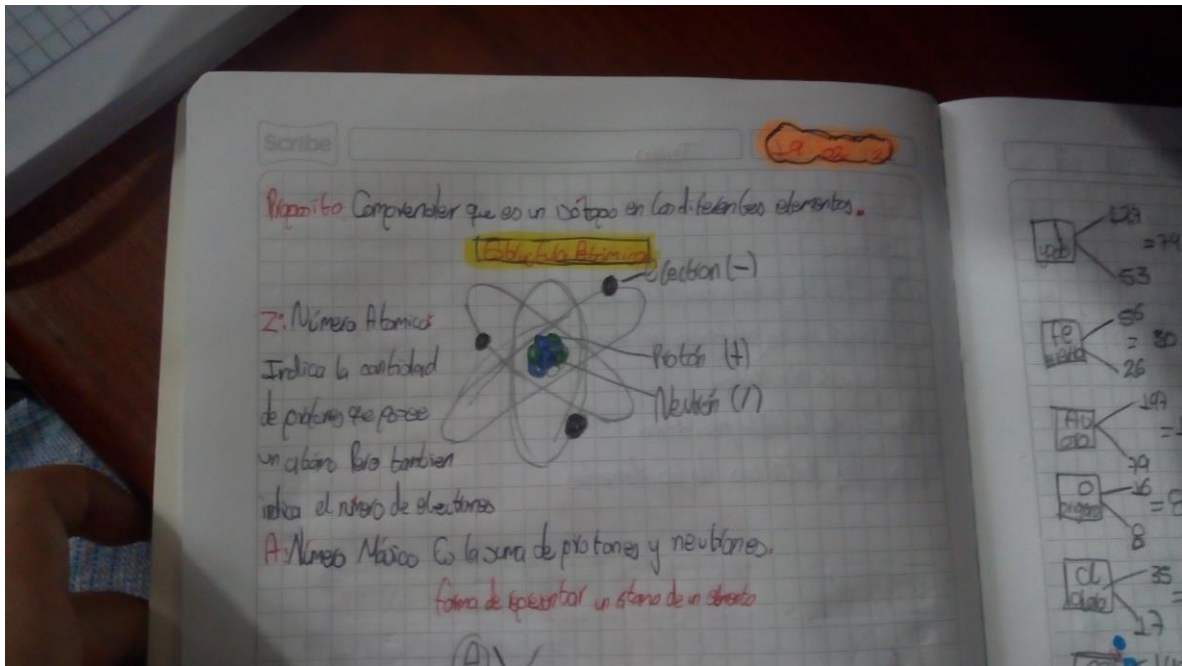 Scribe
19 02
Proposito Comprender que es un isótopo en los diferentes elementos.
Estructura Atomica
electron (-)
Z: Número Atomico:
Indica la cantidad
de protones que posee
un atomo Pero tambien
indica el número de electrones
Protón (+)
Neutrón (/)
A: Número Másico Es la suma de protones y neutrones.
forma de representar un atomo de un elemento
A
yodo
53
Fe
56
= 30
26
Au
oro
197
79
O
oxigeno
16
= 8
8
Cl
cloro
35
=
17